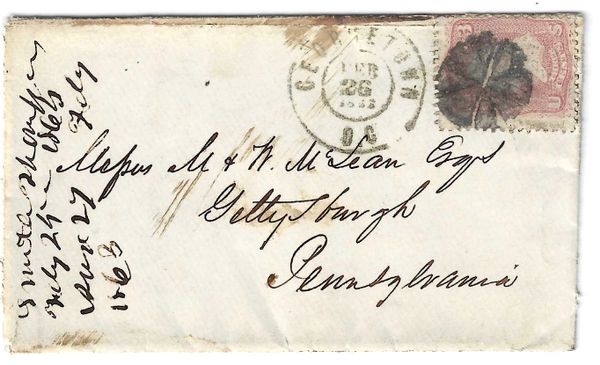 GEORGETOWN
FEB
26
1863
D.C
Messrs M & W. McLean Esqs
Gettysburgh
Pennsylvania
July 24
Feby
Ansd 27
1863